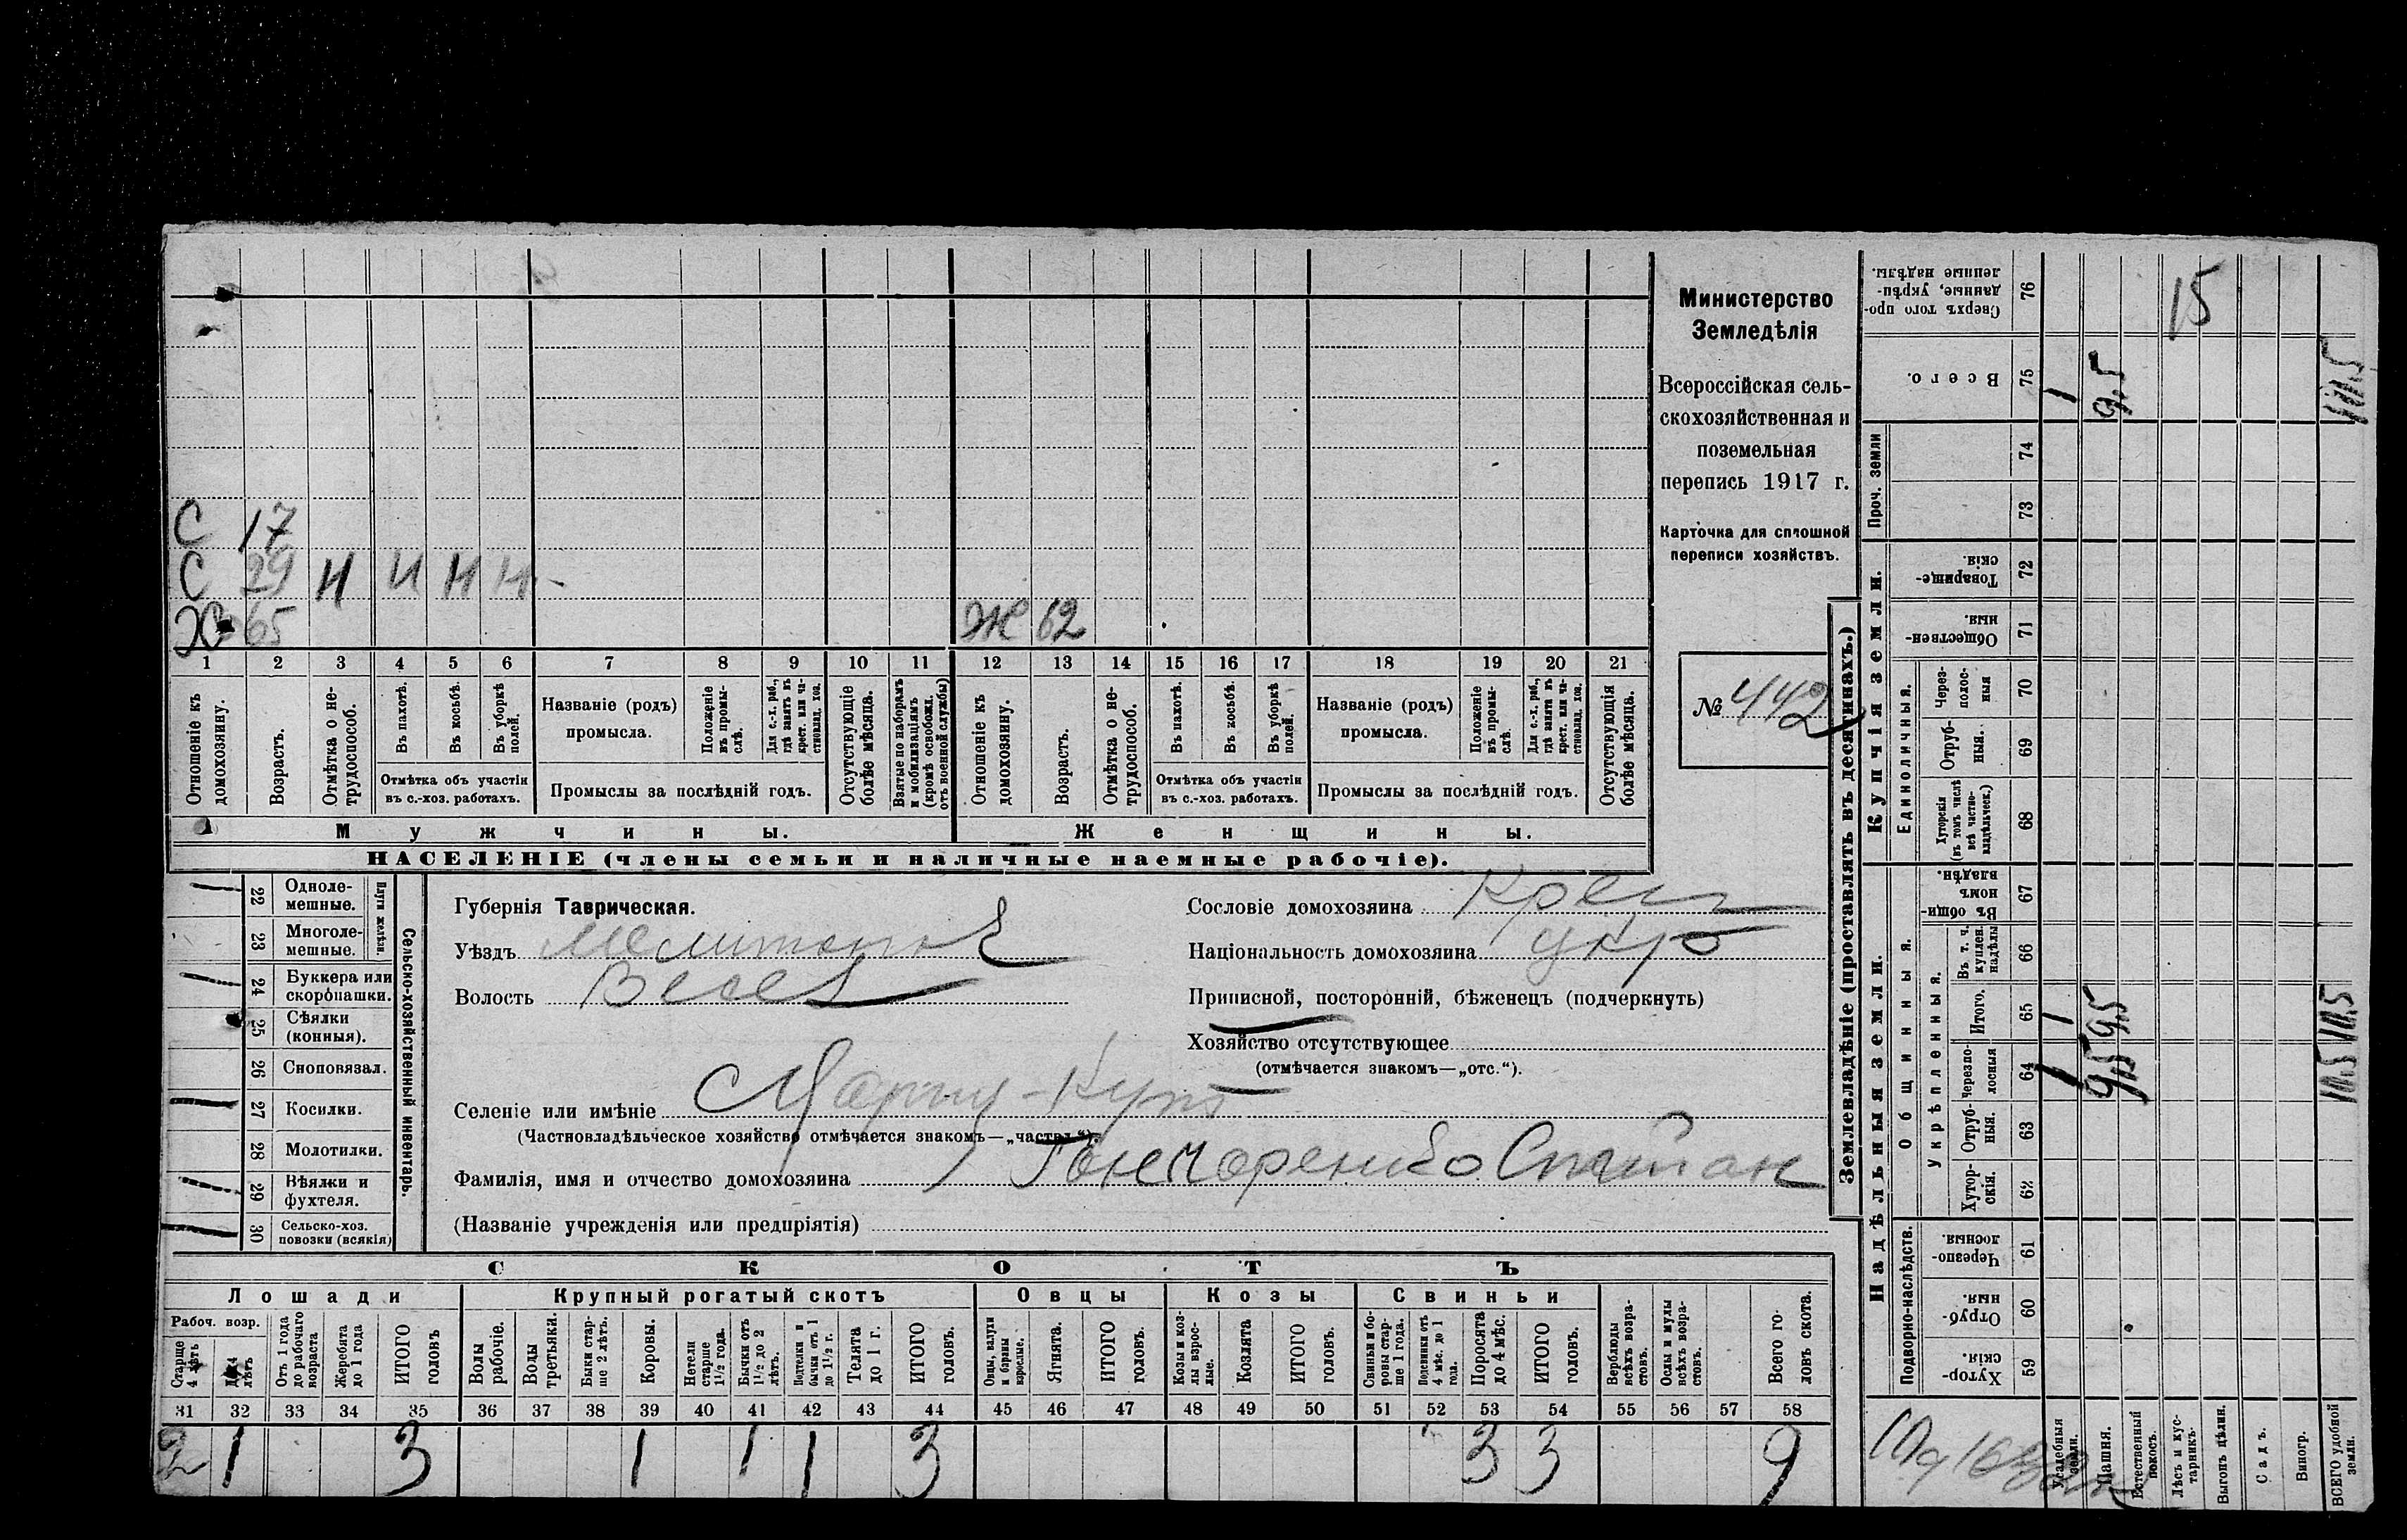 С 17
С 29 Н Н Н Н
Х 65 Ж 62
1 2 3 4 5 6 7 8 9 10 11 12 13 14 15 16 17 18 19 20 21
Отношеніе къ домохозяину.
Возрастъ.
Отмѣтка о не-
трудоспособ.
Въ пахотѣ.
Въ косьбѣ.
Въ уборкѣ
полей.
Отмѣтка объ участіи
въ с.-хоз. работахъ.
Названіе (родъ)
промысла.
Положеніе
въ промы-
слѣ.
Для с.-х. раб.,
гдѣ занятъ въ
крест. или ча-
стновлад. хоз.
Промыслы за послѣдній годъ.
Отсутствующіе
болѣе мѣсяца.
Взятые по наборамъ
и мобилизаціямъ
(кромѣ освобожд.
отъ военной службы)
Отношеніе къ
домохозяину.
Возрастъ.
Отмѣтка о не-
трудоспособ.
Въ пахотѣ.
Въ косьбѣ.
Въ уборкѣ
полей.
Отмѣтка объ участіи
въ с.-хоз. работахъ.
Названіе (родъ)
промысла.
Положеніе
въ промы-
слѣ.
Для с.-х. раб.,
гдѣ занята въ
крест. или ча-
стновлад. хоз.
Промыслы за послѣдній годъ.
Отсутствующія
болѣе мѣсяца.
Мужчины.
Женщины.
НАСЕЛЕНІЕ (члены семьи и наличные наемные рабочіе).
Министерство
Земледѣлія
Всероссійская сель-
скохозяйственная и
поземельная
перепись 1917 г.
Карточка для сплошной
переписи хозяйствъ.
№ 442
22 Одноле-
мешные.
23 Многоле-
мешные.
Плуги желѣзн.
24 Буккера или
скоропашки.
25 Сѣялки
(конныя).
26 Сноповязал.
27 Косилки.
28 Молотилки.
29 Вѣялки и
фухтеля.
30 Сельско-хоз.
повозки (всякія)
Сельско-хозяйственный инвентарь.
Губернія Таврическая.
Уѣздъ Мелитоп
Волость Весел
Селеніе или имѣніе
(Частновладѣльческое хозяйство отмѣчается знакомъ—„частвл.“).
Фамилія, имя и отчество домохозяина Гончаренко Степан
(Названіе учрежденія или предпріятія)
Сословіе домохозяина Крест
Національность домохозяина укр
Приписной, посторонній, бѣженецъ (подчеркнуть)
Хозяйство отсутствующее
(отмѣчается знакомъ—„отс.“).
СКОТЪ
Лошади
Крупный рогатый скотъ
Овцы
Козы
Свиньи
Рабоч. возр.
Старше
4 лѣтъ
До 4
лѣтъ
Отъ 1 года
до рабочаго
возраста
Жеребята
до 1 года
ИТОГО
головъ
Волы
рабочіе.
Волы
третьяки.
Быки стар-
ше 2 лѣтъ.
Коровы.
Нетели
старше
1½ года.
Бычки отъ
1½ до 2
лѣтъ.
Подтелки и
бычки отъ 1
до 1½ г.
Телята
до 1 г.
ИТОГО
головъ.
Овцы, валухи
и бараны
взрослые.
Ягнята.
ИТОГО
головъ.
Козы и коз-
лы взрос-
лые.
Козлята
ИТОГО
головъ.
Свиньи и бо-
ровы стар-
ше 1 года.
Подсвинки отъ
4 мѣс. до 1
года.
Поросята
до 4 мѣс.
ИТОГО
головъ.
Верблюды
всѣхъ возра-
стовъ.
Ослы и мулы
всѣхъ возра-
стовъ.
Всего го-
ловъ скота.
31 32 33 34 35 36 37 38 39 40 41 42 43 44 45 46 47 48 49 50 51 52 53 54 55 56 57 58
2 1 3 1 1 1 3 3 3 9
Землевладѣніе (проставлять въ десятинахъ.)
Надѣльныя земли.
Купчія земли.
Проч. земли
Подворно-наслѣдств.
Общинныя.
Укрѣпленныя.
Единоличныя.
Сверхъ того про-
данные, укрѣп-
ленные надѣлы.
76
Всего.
75
74
73
Товарище-
скія.
72
Обществен-
ныя.
71
Через-
полос-
ныя
70
Отруб-
ныя.
69
Хуторскія
(въ томъ числѣ
всѣ частно-
владѣльческ.)
68
Въ общин-
номъ
владѣн.
67
Въ т. ч.
куплен.
надѣлы
66
Итого.
65
Черезпо-
лосныя
64
Отруб-
ныя.
63
Хутор-
скія.
62
Черезпо-
лосныя.
61
Отруб-
ныя.
60
Хутор-
скія.
59
15
1 9,5 10,5
1 9,5 10,5
1 9,5 10,5
Усадебныя
земли.
Пашня.
Естественный
покосъ.
Лѣсъ и кус-
тарникъ.
Выгонъ цѣлин.
Садъ.
Виногр.
ВСЕГО удобной
земли.